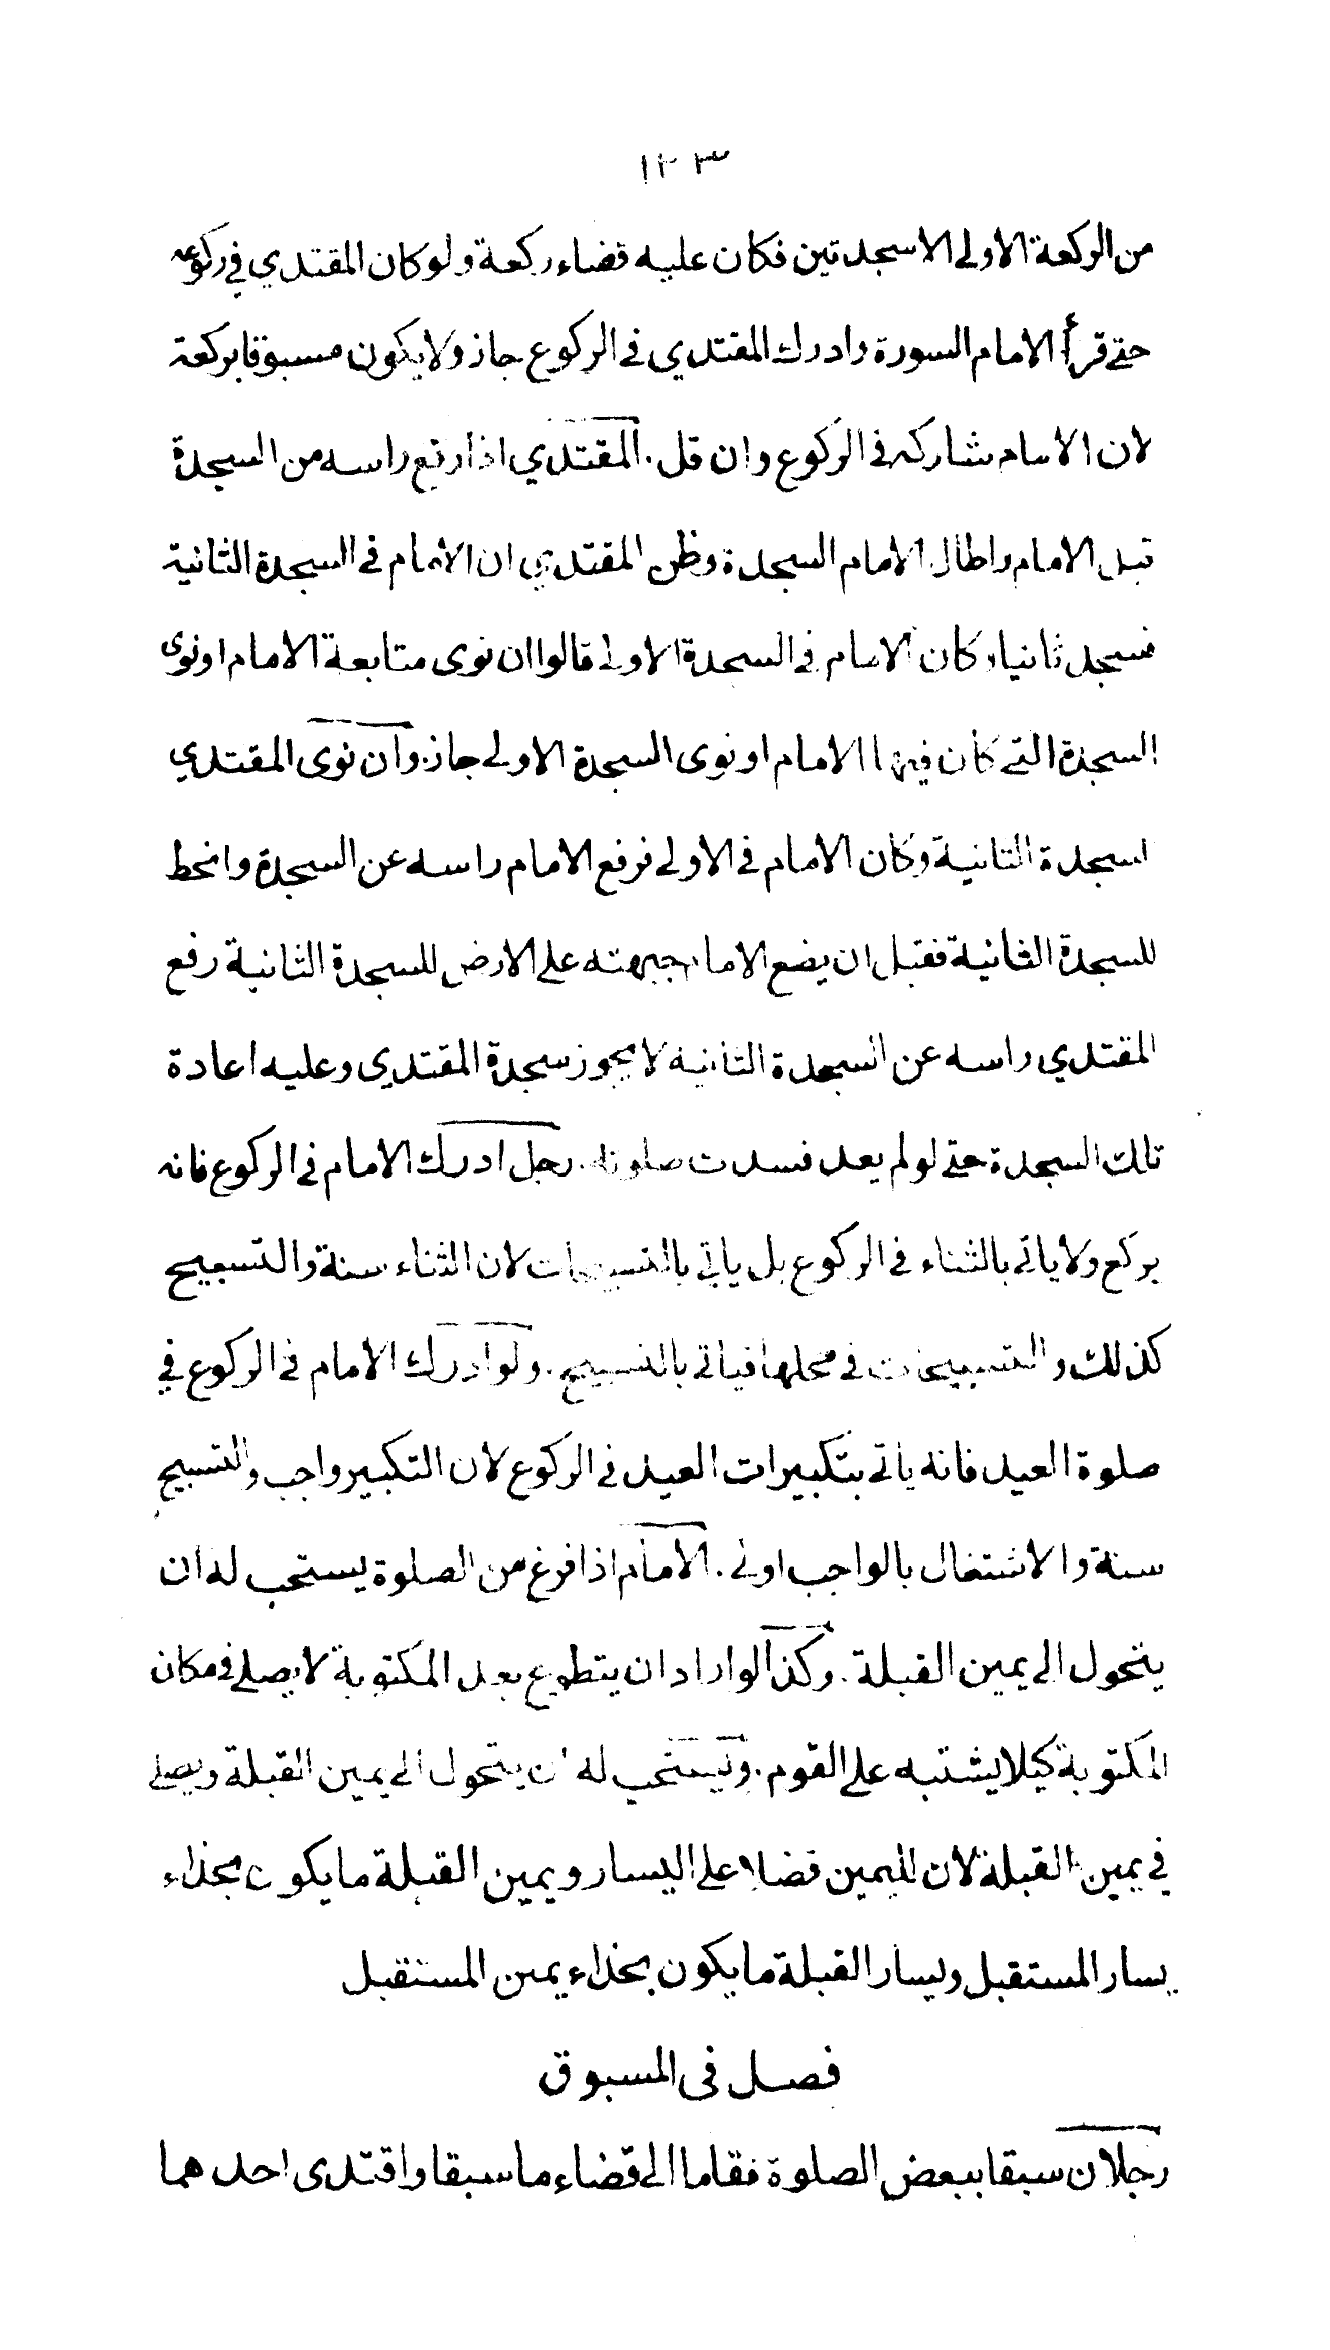 ١٢٣
من الركعة الاولى الا سجدتين فكان عليه قضاء ركعة ولو كان المقتدي في ركوعه
حتى قرأ الامام السورة وادرك المقتدي في الركوع جاز ولا يكون مسبوقا بركعة
لان الامام شاركه في الركوع وان قل . المقتدي اذا رفع راسه من السجدة
قبل الامام واطال الامام السجدة وظن المقتدي ان الامام في السجدة الثانية
فسجد ثانيا وكان الامام في السجدة الاولى قالوا ان نوى متابعة الامام او نوى
السجدة التي كان فيها الامام او نوى السجدة الاولى جاز . وان نوى المقتدي
السجدة الثانية وكان الامام في الاولى فرفع الامام راسه عن السجدة وانحط
للسجدة الثانية فقبل ان يضع الامام جبهته على الارض للسجدة الثانية رفع
المقتدي راسه عن السجدة الثانية لا يجوز سجدة المقتدي وعليه اعادة
تلك السجدة حتى لو لم يعد فسدت صلوته . رجل ادرك الامام في الركوع فانه
يركع ولا ياتي بالثناء في الركوع بل ياتي بالتسبيحات لان الثناء سنة والتسبيح
كذلك والتسبيحات في محلها فياتي بالتسبيح . ولو ادرك الامام في الركوع في
صلوة العيد فانه ياتي بتكبيرات العيد في الركوع لان التكبير واجب والتسبيح
سنة والاشتغال بالواجب اولى . الامام اذا فرغ من الصلوة يستحب له ان
يتحول الى يمين القبلة . وكذا لو اراد ان يتطوع بعد المكتوبة لا يصلى في مكان
المكتوبة كيلا يشتبه على القوم . ويستحب له ان يتحول الى يمين القبلة ويصلى
في يمين القبلة لان لليمين فضلا على اليسار ويمين القبلة ما يكون بحذاء
يسار المستقبل ويسار القبلة ما يكون بحذاء يمين المستقبل
فصل في المسبوق
رجلان سبقا ببعض الصلوة فقاما الى قضاء ما سبقا واقتدى احدهما